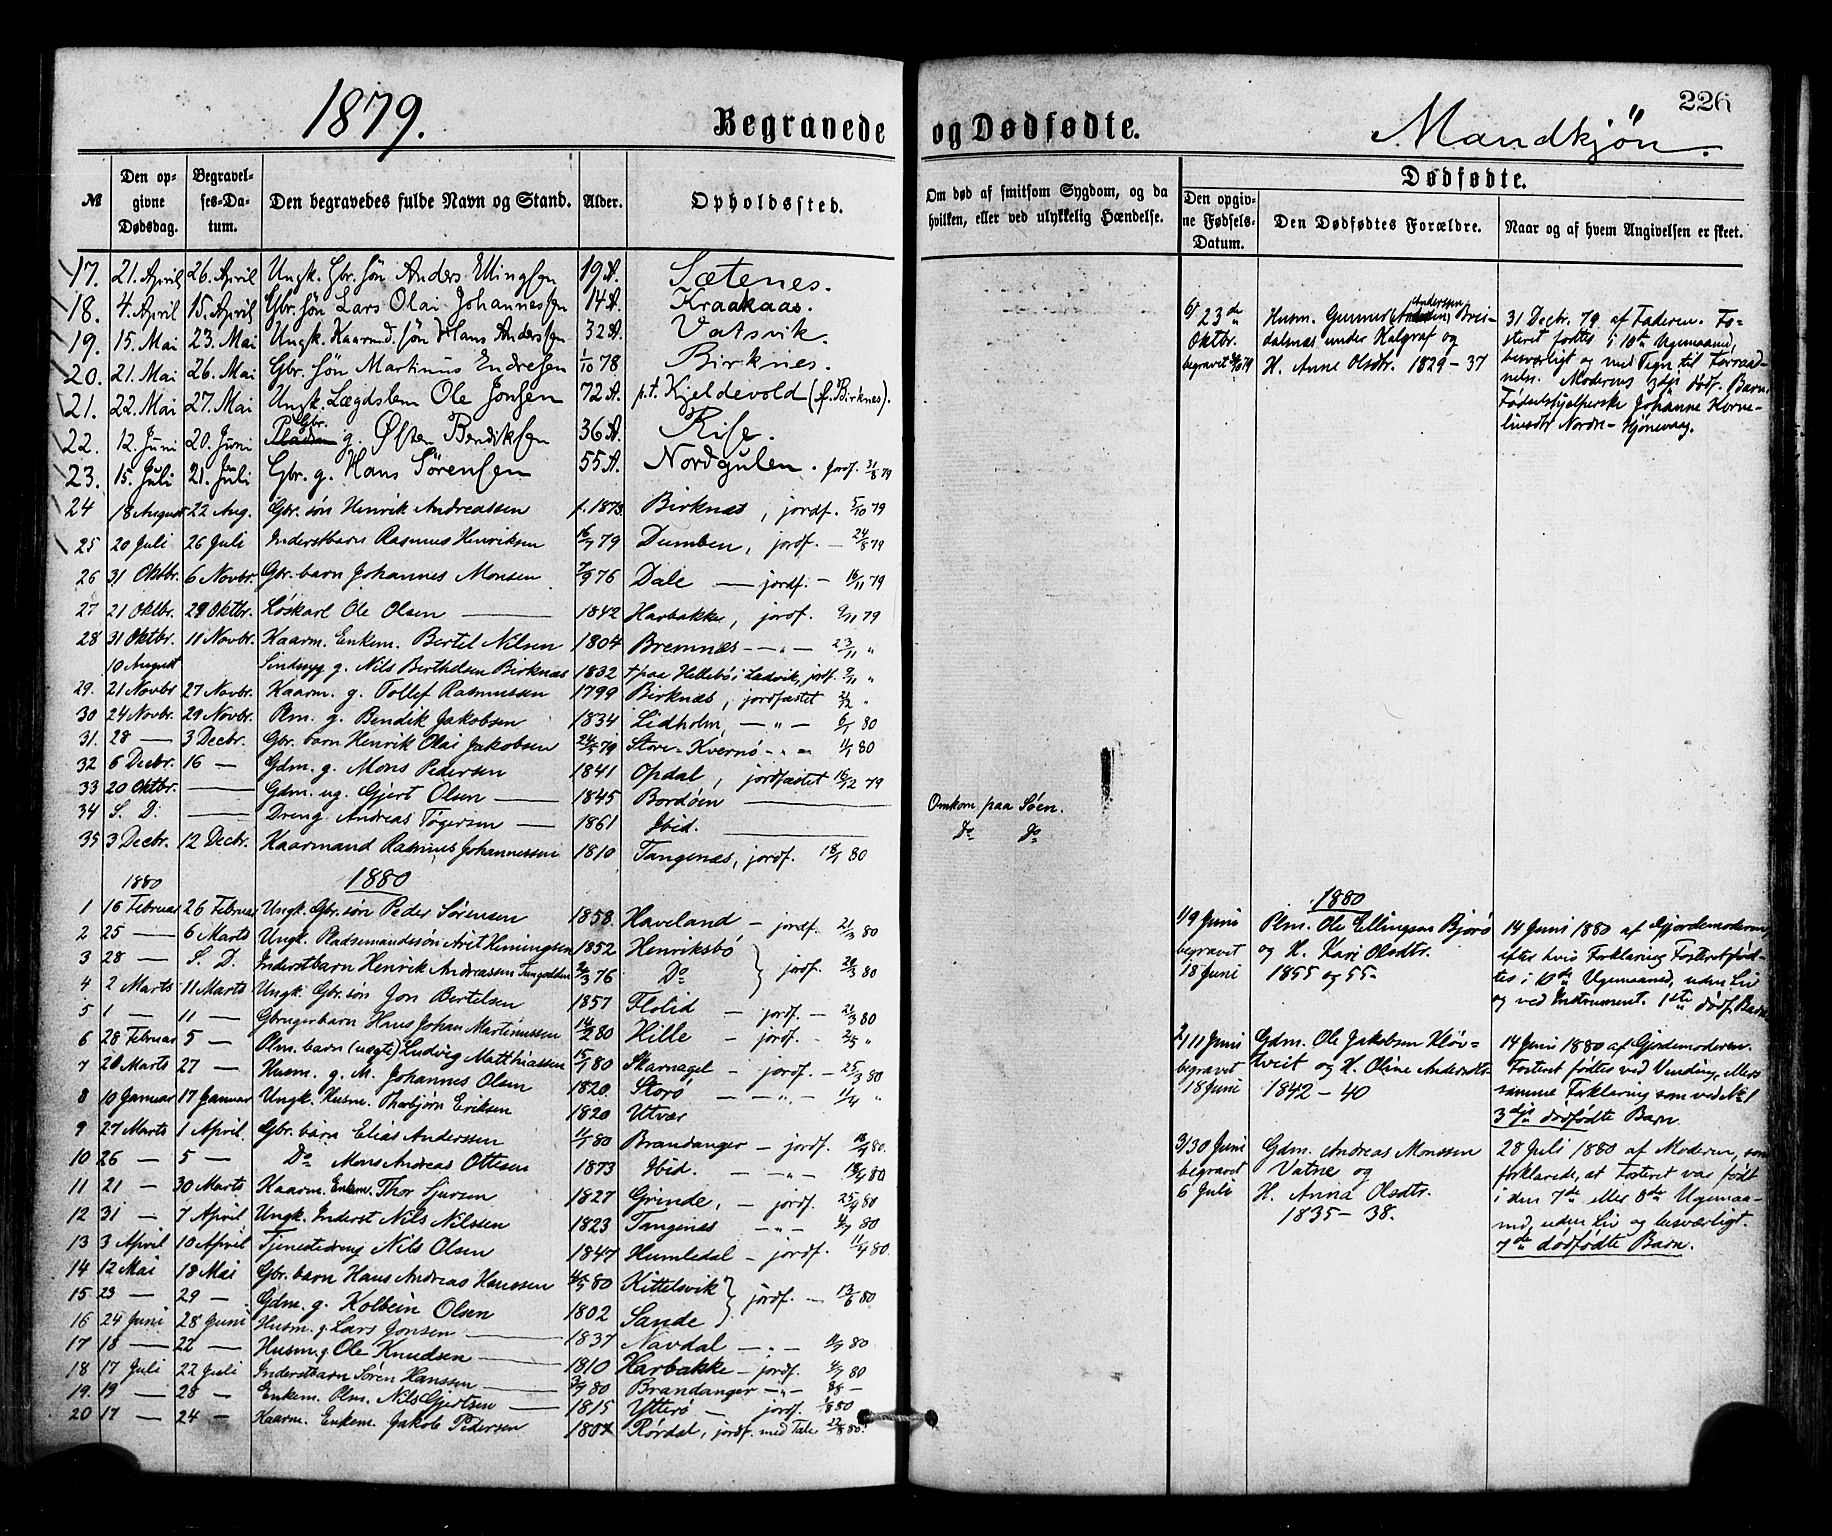 1879.
Begravede
og Dødfødte.
Mandkjøn.
226
№
Den opgivne Dødsdag.
Begravelses-Datum.
Den begravedes fulde Navn og Stand.
Alder.
Opholdssted.
Om død af smitsom Sygdom, og da hvilken, eller ved ulykkelig Hændelse.
Dødfødte.
Den opgivne Fødsels-Datum.
Den Dødfødtes Forældre.
Naar og af hvem Angivelsen er skeet.
17. 21. April 26. April Ungk. Gbr. søn Anders Ellingsen 19 A. Sætenes.
18. 4. April 15. April Gbr. søn Lars Olai Johannessen 14 A. Kraakaas.
19. 15. Mai 23. Mai Ungk. Kaarmd. søn Hans Andersen 32 A. Vatsvik.
20. 21. Mai 26. Mai Gbr. søn Martinus Endresen 1/10 78 Birknes.
21. 22. Mai 27. Mai Ungk. Lægdslem Ole Jonsen 72 A. p.t. Kjeldevold (f. Birknes).
22. 12. Juni 20. Juni Gbr. g. Østen Bendiksen 36 A. Rise.
23. 15. Juli 21. Juli Gbr. g. Hans Sørensen 55 A. Nordgulen. jordf. 31/8 79
24 18 August 22 Aug. Gbr. søn Henrik Andreassen f. 1873 Birknæs, jordf. 5/10 79
25 20 Juli 26 Juli Inderstbarn Rasmus Henriksen 16/7 79 Dumben, jordf. — 24/8 79
26 31 Oktbr. 6 Novbr. Gbr. barn Johannes Monsen 7/9 76 Dale — jordf. — 16/11 79
27 21 Oktbr. 29 Oktbr. Løskarl Ole Olsen — 1842 Harbakke, jordf. 9/11 79
28 31 Oktbr. 11 Novbr. Kaarm. Enkem. Bertel Nilsen 1804 Bremnæs — " — 23/11 "
10 August Sindssyg g. Nils Berthelsen Birknæs 1832 † paa Hellebø i Ladvik, jordf. 9/11 "
29. 21 Novbr 27 Novbr. Kaarm. g. Tollef Rasmussen 1799 Birknæs, jordfæstet "
30 24 Novbr. 29 Novbr. Plm. g. Bendik Jakobsen 1834 Lidholm, — " — 6/1 80
31. 28 — 3 Decbr. Gbr. barn Henrik Olai Jakobsen 79 Store-Kvernø — " — 1/1 80
32 6 Decbr. 16 — Gdm. g. Mons Pedersen 1841 Opdal, jordfæstet 16/12 79
33 20 Oktbr. — Gdm. ug. Gjert Olsen — 1845 Bordøen — Omkom paa Søen.
34 S. D. — Dreng Andreas Tøgersen — 1861 Ibid. — Do Do
35 3 Decbr. 12 Decbr. Kaarmand Rasmus Johannessen 1810 Tangenæs, jordf. 18/1 80
1880 1880
1 16 Februar 26 Februar Ungk. Gbr. søn Peder Sørensen 1858. Haveland — jordf. 21/3 80
2 25 — 6 Marts Ungk. Pladsemandssøn Henningsen 1852 Henriksbø
3 28 — S. D. Inderstbarn Henrik Andreassen 76 Do jordf. 80
4 2 Marts 11 Marts Ungk. Gbr. søn Jon Bertelsen 1857 Flolid — jordf. — 21/3 80
5 1 — 11 — Gbrugerbarn Hans Johan Martinussen 80 Hille — jordf. — "
6 28 Februar 5 — Plm. barn (uægte) Ludvig Matthiassen 15/1 80 Skarnagel — jordf. — 25/3 80
7 20 Marts 27 — Husm. g. M. Johannes Olsen 1820. Storø — " — 11/4 "
8 10 Januar 17 Januar Ungk. Husm. Thorbjørn Eriksen 1820 Utvær
9 27 Marts 1 April. Gbr. barn Elias Anderssen 80 Brandanger — jordf. 18/4 80.
10 26 — 5 — Do Mons Andreas Ottesen 1873 Ibid. — " — 18/4 80
11 21 — 30 Marts Kaarm. Enkem. Thor Sjursen 1827 Grinde, — jordf. 25/4 80
12 31 — 7 April Ungk. Inderst Nils Nilssen 1823 Tangenæs — " — 80
13 3 April 10 April Tjenestedreng Nils Olsen 1847 Humledal — jordf. 11/4 80.
14 12 Mai 18 Mai Gbr. barn Hans Andreas Hanssen 80 Kittelsvik
15 23 — 29 — Gdm. g. Kolbein Olsen 1802 Sande jordf. — 13/6 80
16 24 Juni 28 Juni Husm. g. Lars Jonsen — 1837 Navdal — " — 80
17 18 — 22 — Husm. g. Ole Knudsen — 1810 Harbakke — jordf. 80
18 17 Juli 22 Juli Inderstbarn Søren Hanssen — 80 Brandanger — " —
19. 19 — 28 — Enkem. Plm. Nils Gjertsen — 1815 Ytterø — jordf. 1/8 80
20 17 — 24 — Kaarm. Enkem. Jakob Pedersen 1807 Rørdal, jordf. med Tale 22/8 80.
6/ 23de Oktbr. begravet 79
Husm. Gunnar Anderssen Breidalnæs under Kalgraf og
H. Anne Olsdtr. 1829 – 37
31 Decbr. 79 af Faderen. Fosteret fødtes i 10de Ugemaaned,
besværligt og med Tegn til Forraadnelse. Moderens 3dje dødf. Barn.
Fødselshjelperske Johanne Kornelius dtr Nordre-Hjønevaag.
1880
1/ 9 Juni begravet 18 Juni
Plm. Ole Ellingsen Bjørø
og H. Kari Olsdtr.
1855 og 55.
14 Juni 1880 af Gjordemoderen,
efter hvis Forklaring Fosteret fødtes i 10de Ugemaaned, uden Liv
og ved Instrument. 1ste dødf. Barn
2/ 11 Juni begravet 18 Juni
Gdm. Ole Jakobsen Kløvtveit og H. Oline Andersdtr.
1842 – 40
14 Juni 1880 af Gjordemoderen.
Fosteret fødtes ved Vending, ellers
samme Forklaring som ved № 1
3dje dødfødte Barn
3/ 30 Juni begravet 6 Juli
Gdm. Andreas Monssen
Vatne og
H. Anna Olsdtr.
1835 – 38.
28 Juli 1880 af Moderen, som
forklarede, at Fosteret var født
i den 7de eller 8de Ugemaaned, uden Liv og besværligt.
7de dødfødte Barn.